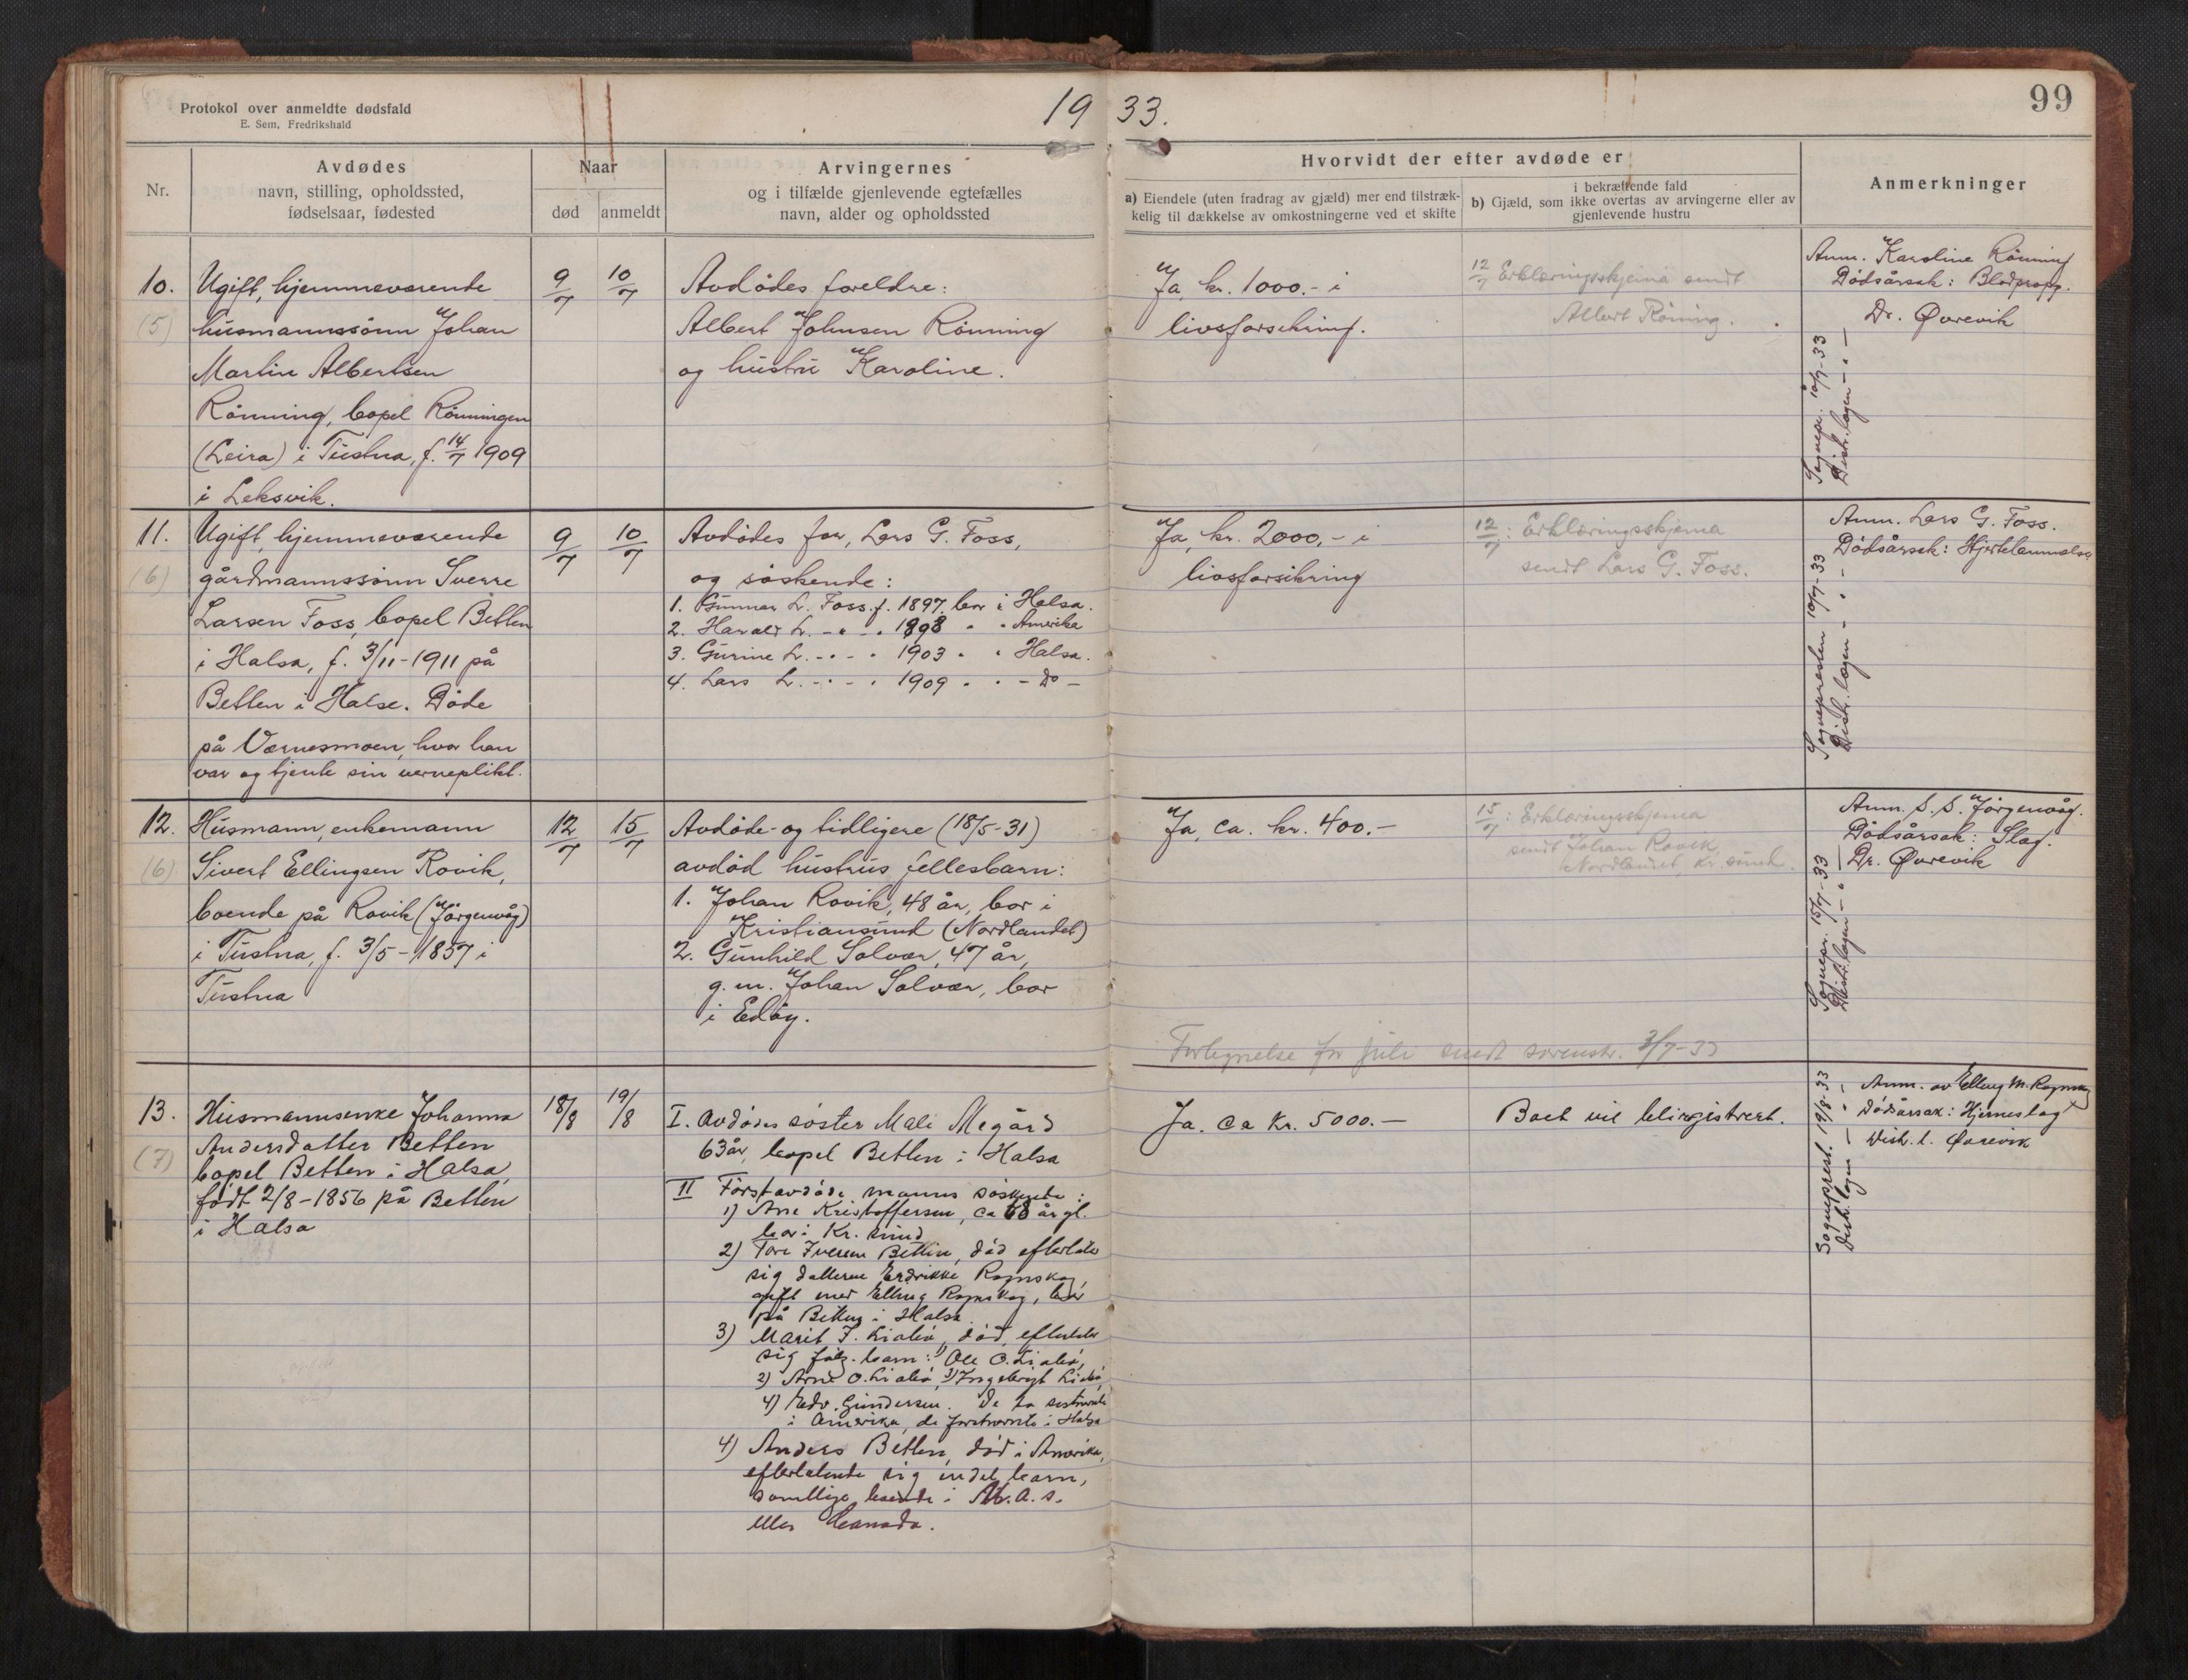 Protokol over anmeldte dødsfald
E. Sem, Fredrikshald
19 33.
99
Nr.
Avdødes
navn, stilling, opholdssted,
fødselsaar, fødested
Naar
død
anmeldt
Arvingernes
og i tilfælde gjenlevende egtefælles
navn, alder og opholdssted
Hvorvidt der efter avdøde er
a) Eiendele (uten fradrag av gjæld) mer end tilstræk-
kelig til dækkelse av omkostningerne ved et skifte
i bekræftende fald
b) Gjæld, som ikke overtas av arvingerne eller av
gjenlevende hustru
Anmerkninger
10.
(5)
Ugift, hjemmeværende
husmannssønn Johan
Martin Albertsen
Rønning, bopel Rønningen
(Leira) i Tustna, f. 14/7 1909
i Leksvik.
9/7
10/7
Avdødes foreldre:
Albert Johnsen Rønning
og hustru Karoline.
Ja, kr. 1000.- i
livsforsikring.
12/7 Erklæringsskjema sendt
Albert Røning.
Anm. Karoline Rønning
Dødsårsak: Blodpropp.
Dr. Øvrevik
Sognepr. 10/7-33
Distr.lægen - " -
11.
(6)
Ugift, hjemmeværende
gårdmannssønn Sverre
Larsen Foss, bopel Betten
i Halsa, f. 3/11-1911 på
Betten i Halse. Døde
på Værnesmoen, hvor han
var og tjente sin verneplikt.
9/7
10/7
Avdødes far, Lars G. Foss,
og søskende:
1. Gunnar L. Foss. f. 1897. bor i Halsa.
2. Harald L. - " - " 1898 " " Amerika
3. Gurine L. - " - " 1903 " " Halsa.
4. Lars L. - " - " 1909 " " - Do -
Ja, kr. 2000,- i
livsforsikring
12/7: Erklæringsskjema
sendt Lars G. Foss.
Anm. Lars G. Foss.
Dødsårsak: Hjertelammelse
Sognepresten 10/7-33
Distr.lægen - " -
12.
(6)
Husmann, enkemann
Sivert Ellingsen Rovik,
boende på Rovik (Jørgenvåg)
i Tustna, f. 3/5-1857 i
Tustna
12/7
15/7
Avdøde- og tidligere (18/5-31)
avdød hustrus fellesbarn:
1. Johan Rovik, 48 år, bor i
Kristiansund (Nordlandet)
2. Gunhild Solvær, 47 år,
g.m. Johan Solvær, bor
i Edøy.
Ja, ca. kr. 400.-
15/7: Erklæringsskjema
sendt Johan Rovik,
Nordlandet, Kr. sund.
Anm. S. S. Jørgenvåg.
Dødsårsak: Slag.
Dr. Øvrevik
Sognepr. 15/7-33
Distr.lægen - " -
Fortegnelse for juli sendt sorenskr. 3/7-33
13.
(7)
Husmannsenke Johanna
Andersdatter Betten
bopel Betten i Halsa,
født 2/8-1856 på Betten
i Halsa
18/8
19/8
I. Avdødes søster Mali Megård
63 år, bopel Betten i Halsa
II Førstavdøde manns søskende:
1) Arne Kristoffersen, ca 68 år gl.
bor i Kr. sund
2) Tore Iversen Betten, død efterlater
sig datteren Hendrikke Rognskog,
gift med Elling Rognskog, bor
på Betten i Halsa.
3) Marit I. Liabø, død, efterlater
sig følg. barn: 1) Ole O. Liabø,
2) Arne O. Liabø, 3) Ingebrigt Liabø,
4) Edv. Gundersen. De to sistnevnte
i Amerika, de førstnevnte i Halsa
4) Anders Betten, død i Amerika,
efterlatende sig endel barn,
samtlige boende i U.S.A.
eller Canada.
Ja. ca Kr. 5000.-
Boet vil bli registrert.
Anm. av Elling M. Rognskog
Dødsårsak: Hjerneslag
Distr. l. Øvrevik
Sogneprest. 19/8-33
Distr. lægen - " -